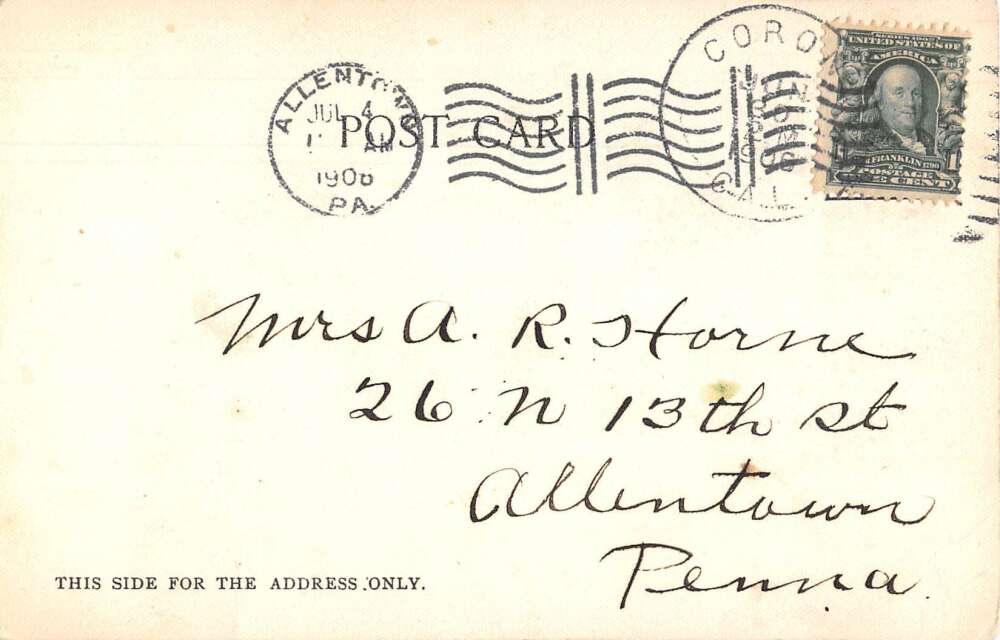 ALLENTOWN
JUL 4
AM
1906
PA.
POST CARD
CORON
JUN
CAL
SERIES 1902
UNITED STATES OF AMERICA
FRANKLIN
POSTAGE
CENT
Mrs A. R. Horne
26 N 13th st
Allentown
Penna.
THIS SIDE FOR THE ADDRESS ONLY.